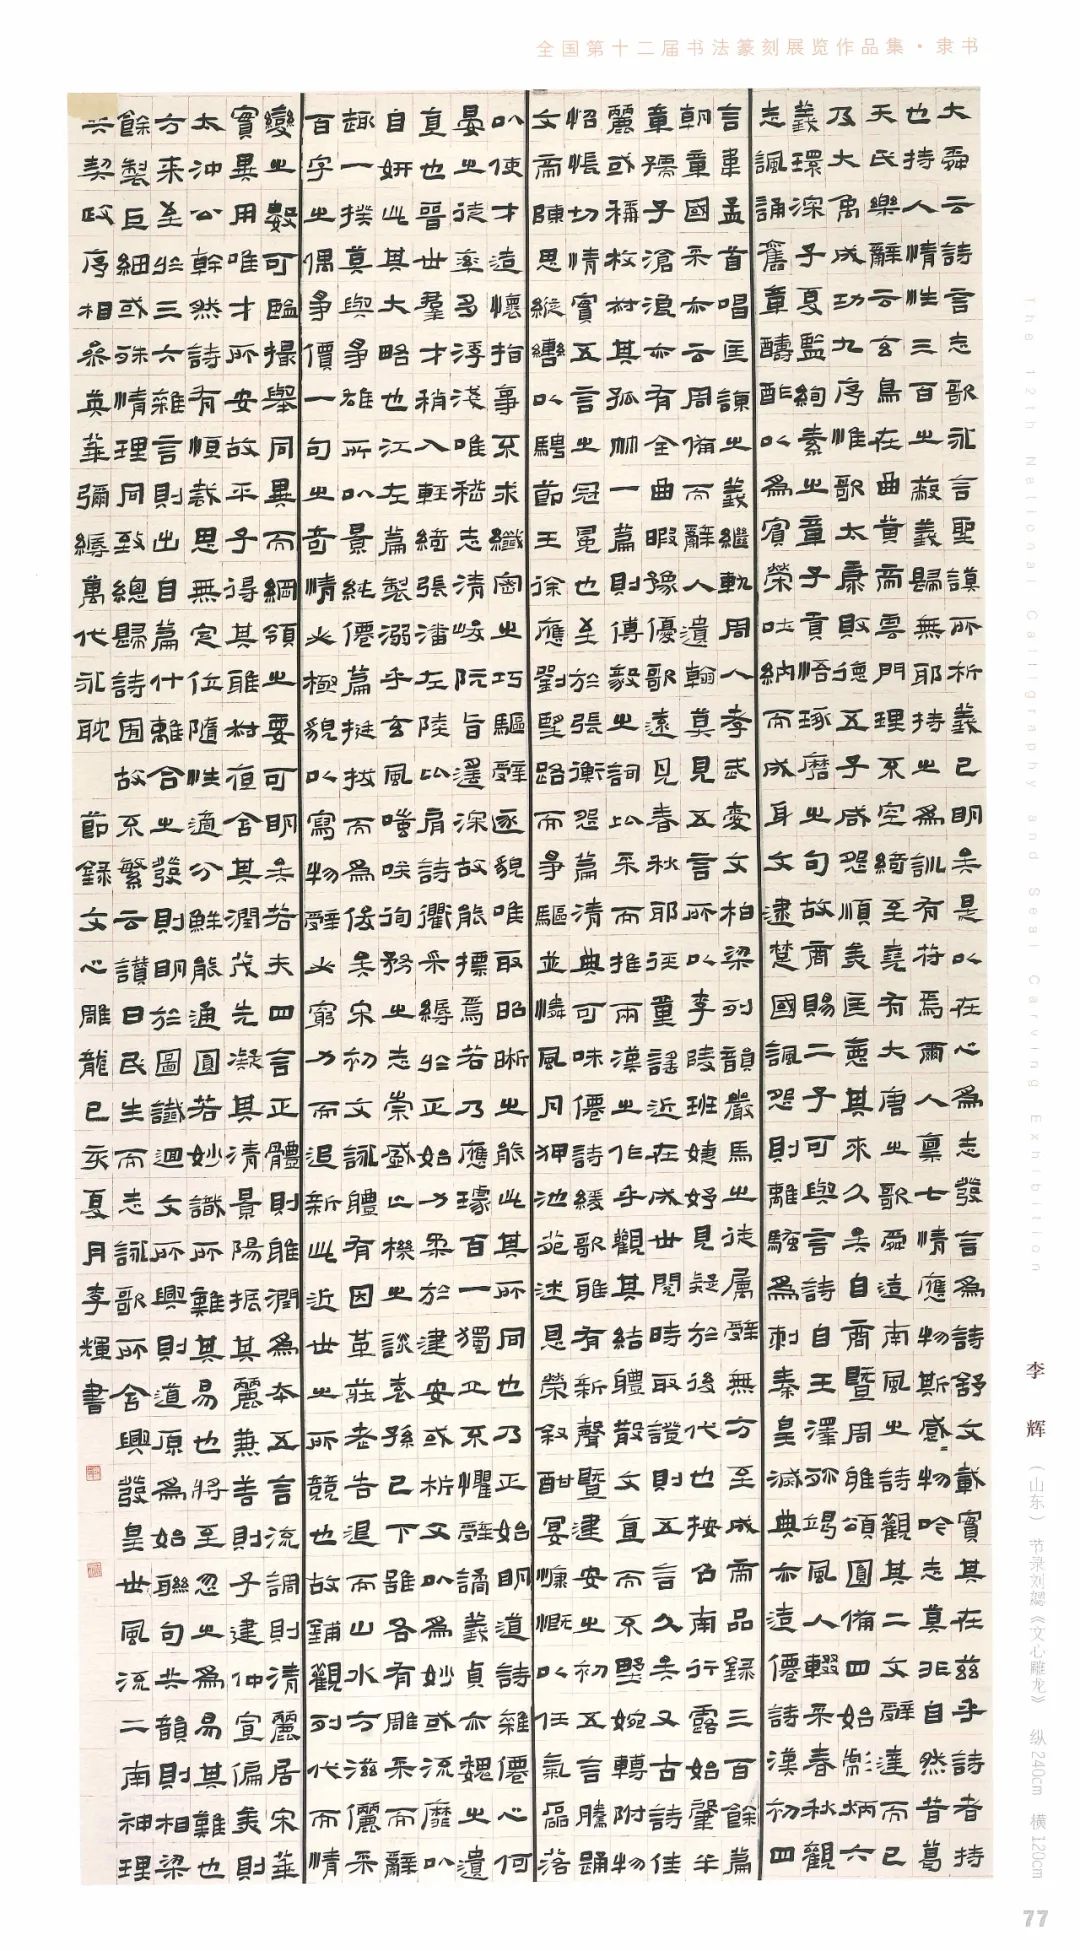 全国第十二届书法篆刻展览作品集·隶书
大舜云詩言志歌永言聖謨所析義已明矣是以在心為志發言為詩舒文載實其在茲乎詩者持
也持人情性三百之蔽義歸無邪持之為訓有符焉爾人稟七情應物斯感物吟志莫非自然昔葛
天氏樂辭云玄鳥在曲黃帝雲門理不空綺至堯有大唐之歌舜造南風之詩觀其二文辭達而已
乃大禹成功九序惟歌太康敗德五子咸怨順美匡惡其來久矣自商暨周雅頌圓備四始彪炳六
義環深子夏監絢素之章子貢悟琢磨之句故商賜二子可與言詩自王澤殄竭風人輟采春秋觀
志諷誦舊章酬酢以為賓榮吐納而成身文逮楚國諷怨則離騷為刺秦皇滅典亦造僊詩漢初四
言韋孟首唱匡諫之義繼軌周人孝武愛文柏梁列韻嚴馬之徒屬辭無方至成帝品錄三百餘篇
朝章國采亦云周備而辭人遺翰莫見五言所以李陵班婕妤見疑於後代也按召南行露始肇半
章孺子滄浪亦有全曲暇豫優歌遠見春秋邪徑童謠近在成世閱時取證則五言久矣又古詩佳
麗或稱枚叔其孤竹一篇則傅毅之詞比采而推兩漢之作乎觀其結體散文直而不野婉轉附物
怊悵切情實五言之冠冕也至於張衡怨篇清典可味僊詩緩歌雅有新聲暨建安之初五言騰踊
文帝陳思縱轡以騁節王徐應劉望路而爭驅並憐風月狎池苑述恩榮敘酣宴慷慨以任氣磊落
以使才造懷指事不求纖密之巧驅辭逐貌唯取昭晰之能此其所同也乃正始明道詩雜僊心何
晏之徒率多浮淺唯嵇志清峻阮旨遙深故能標焉若乃應璩百一獨立不懼辭譎義貞亦魏之遺
直也晉世羣才稍入輕綺張潘左陸比肩詩衢采縟於正始力柔於建安或析文以為妙或流靡以
自妍此其大略也江左篇製溺乎玄風嗤笑徇務之志崇盛亡機之談袁孫已下雖各有雕采而辭
趣一揆莫與爭雄所以景純僊篇挺拔而為俊矣宋初文詠體有因革莊老告退而山水方滋儷采
百字之偶爭價一句之奇情必極貌以寫物辭必窮力而追新此近世之所競也故鋪觀列代而情
變之數可監撮舉同異而綱領之要可明矣若夫四言正體則雅潤為本五言流調則清麗居宋華
實異用唯才所安故平子得其雅叔夜含其潤茂先凝其清景陽振其麗兼善則子建仲宣偏美則
太沖公幹然詩有恒裁思無定位隨性適分鮮能通圓若妙識所難其易也將至忽之為易其難也
方來至於三六雜言則出自篇什離合之發則明於圖讖迴文所興則道原為始聯句共韻則柏梁
餘製巨細或殊情理同致總歸詩囿故不繁云讚曰民生而志詠歌所含興發皇世風流二南神理
共契政序相參英華彌縟萬代永耽 節錄文心雕龍己亥夏月李輝書
The 12th National Calligraphy and Seal Carving Exhibition
李 辉 （山东） 节录刘勰《文心雕龙》 纵240cm 横120cm
77